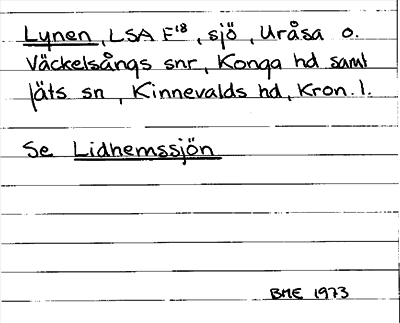 Lynen, LSA E¹⁸, sjö, Uråsa o.
Väckelsångs snr, Konga hd samt
Jäts sn, Kinnevalds hd, Kron. l.
Se Lidhemssjön
BME 1973